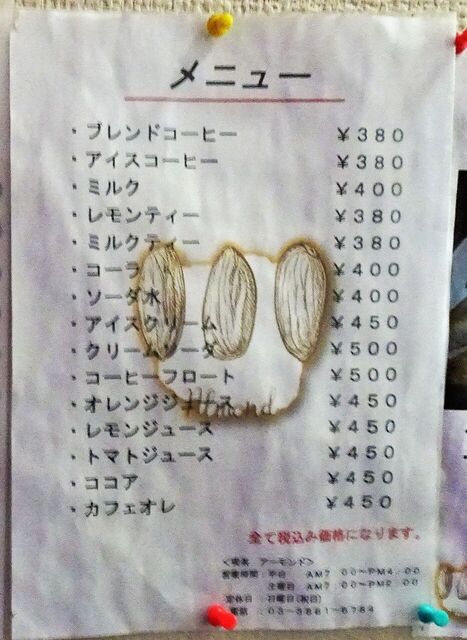 メニュー
・ブレンドコーヒー ￥380
・アイスコーヒー ￥380
・ミルク ￥400
・レモンティー ￥380
・ミルクティー ￥380
・コーラ ￥400
・ソーダ水 ￥400
・アイスクリーム ￥450
・クリームソーダ ￥500
・コーヒーフロート ￥500
・オレンジジュース ￥450
・レモンジュース ￥450
・トマトジュース ￥450
・ココア ￥450
・カフェオレ ￥450
Almond
全て税込み価格になります。
<喫茶 アーモンド>
営業時間：平日 AM7：00～PM4：00
土曜日 AM7：00～PM2：00
定休日：日曜日(祝日)
電話：03-3881-6784